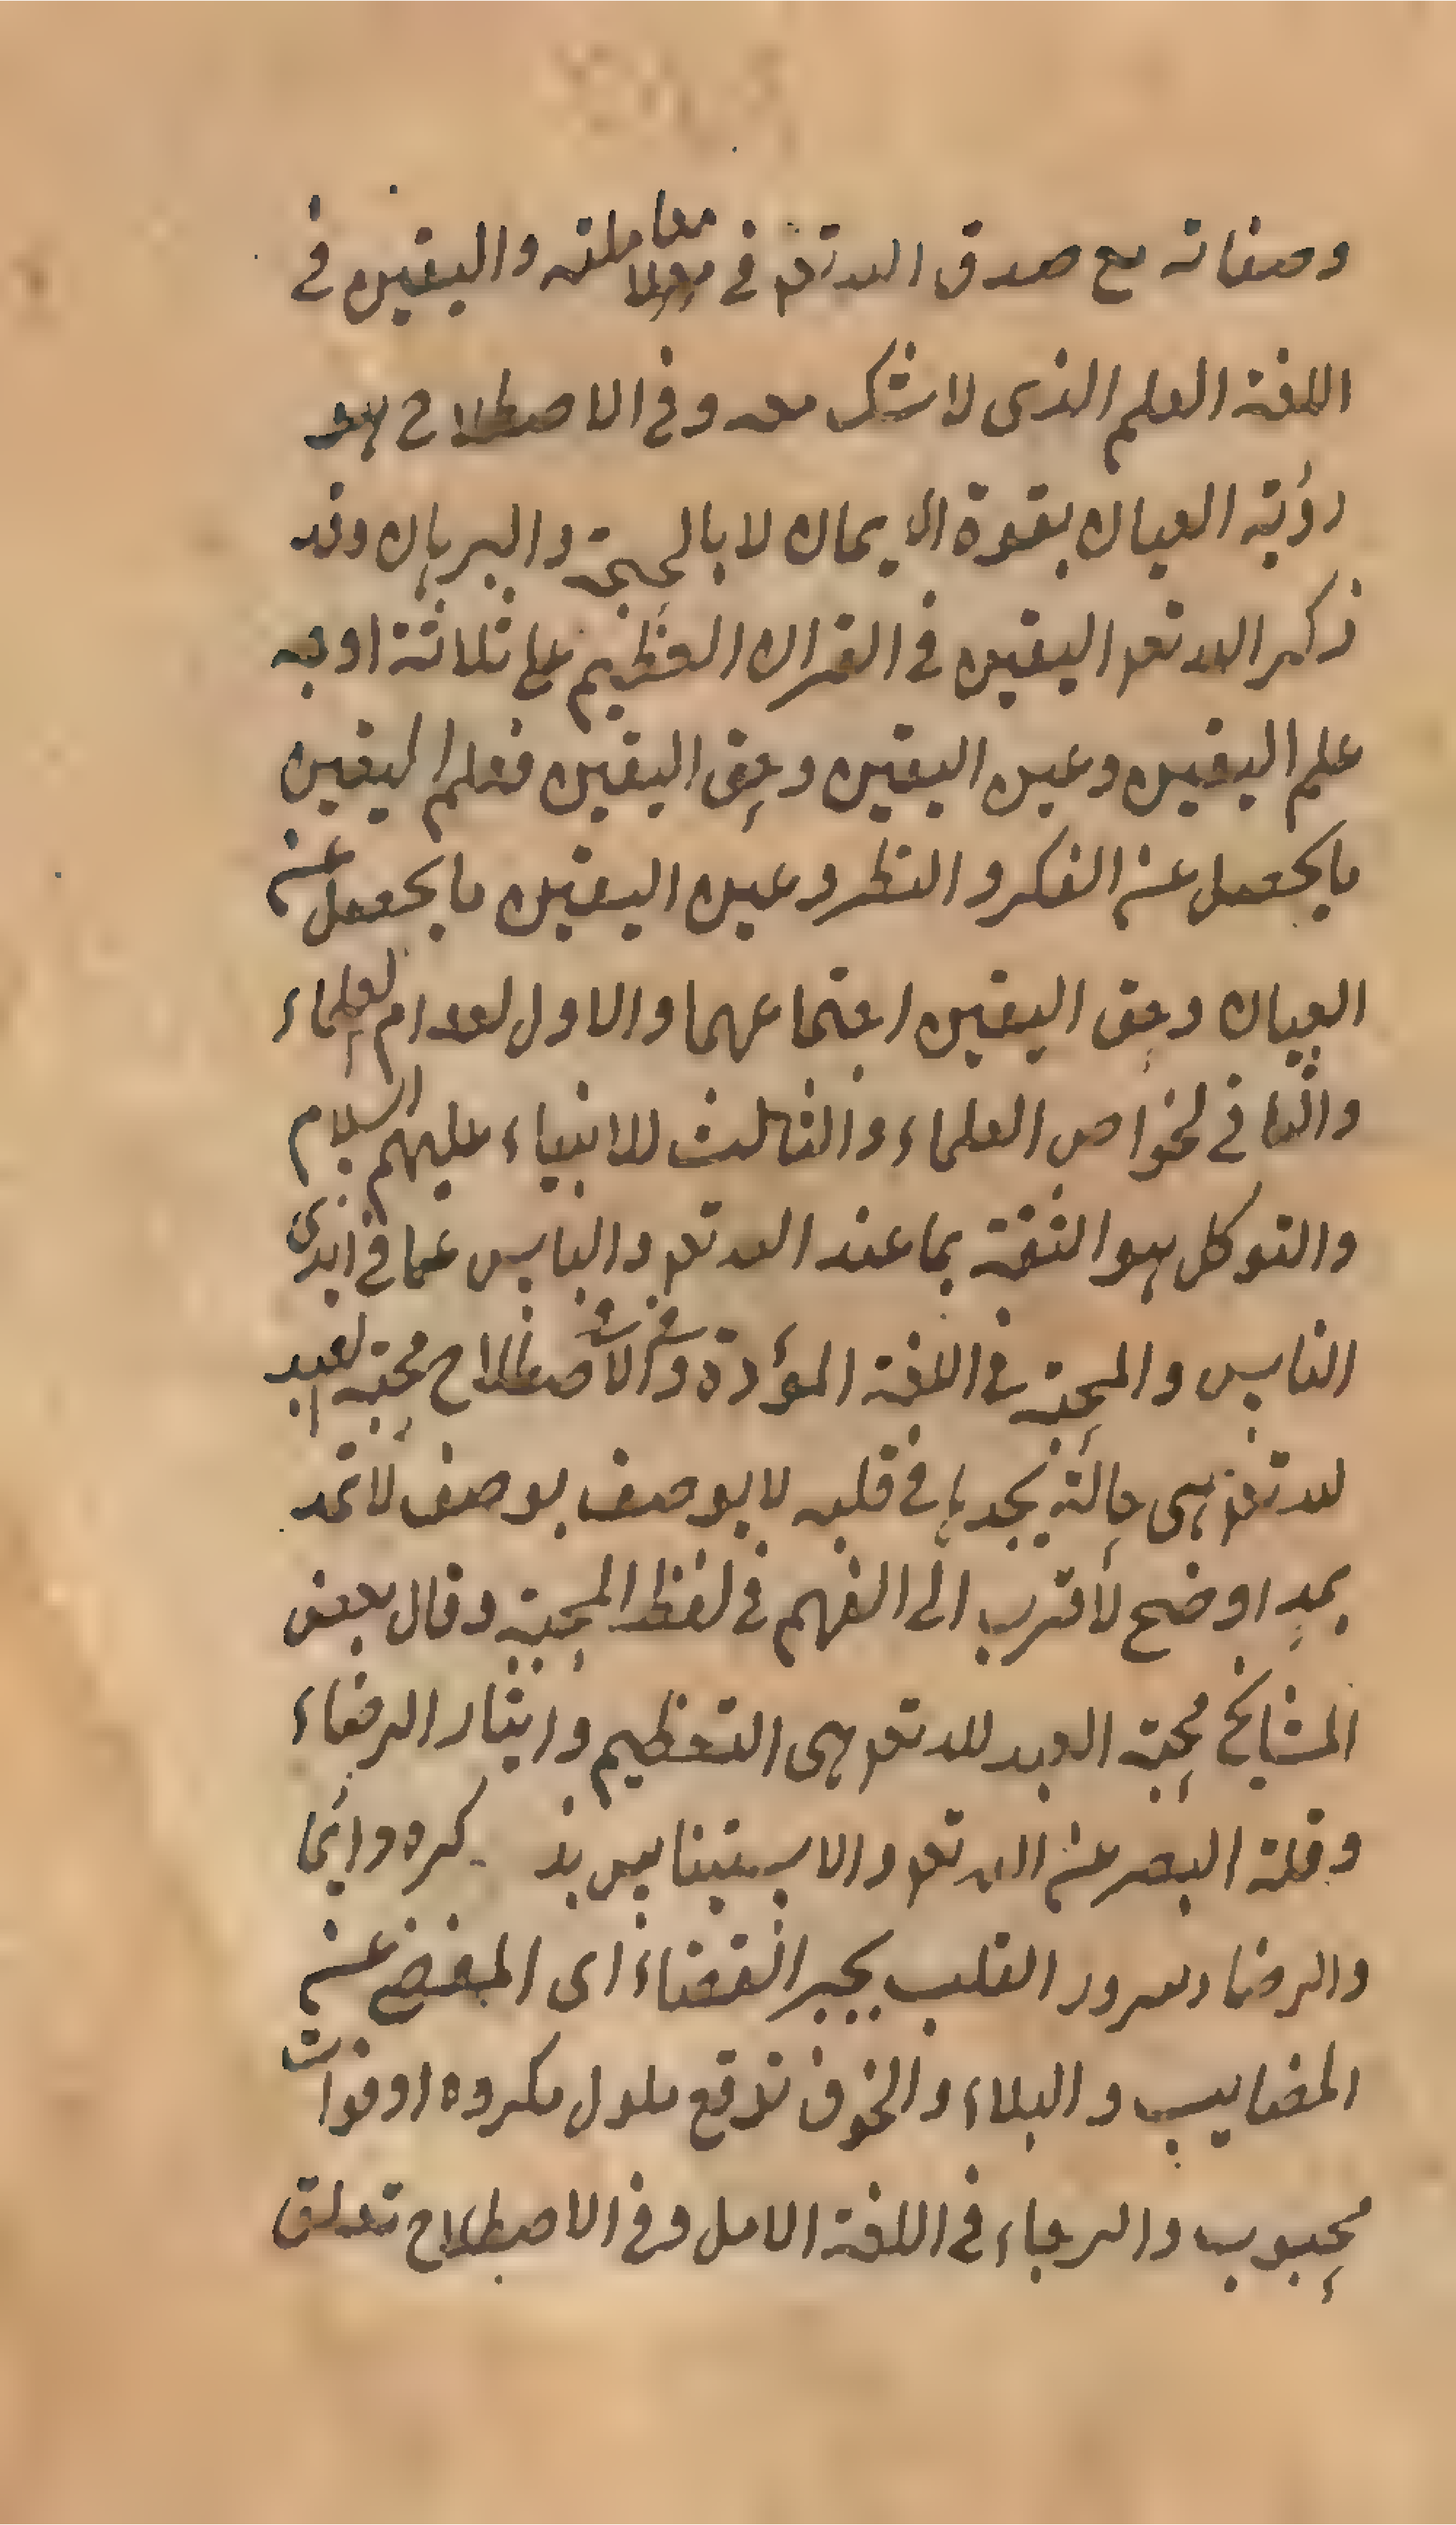 وصفاته مع صدق الله تعم في معاملته واليقين في
اللغة العلم الذي لا شك معه وفي الاصطلاح هو
رؤية العيان بقوة الايمان لا بالحجة والبرهان وقد
ذكر الله تعم اليقين في القران العظيم على ثلاثة اوجه
علم اليقين وعين اليقين وحق اليقين فعلم اليقين
ما يحصل عن الفكر والنظر وعين اليقين ما يحصل عن
العيان وحق اليقين اجتماعهما والاول لعوام العلماء
والثاني لخواص العلماء والثالث للانبياء عليهم السلام
والتوكل هو الثقة بما عند الله تعم والياس عما في ايدي
الناس والمحبة في اللغة المؤدة وفي الاصطلاح محبة العبد
لله تعم هي حالة يجدها في قلبه لا يوصف بوصف لا تحد
بحد اوضح لاقرب الى الفهم في لفظ المحبة وقال بعض
المشايخ محبة العبد لله تعم هي التعظيم وايثار الرضاء
وقلة البصر عن الله تعم والاستيناس بذكره دائما
والرضا سرور القلب بجبر القضاء اى المفضى عن
المضايب والبلاء والخوف توقع ملول مكروه او فوات
محبوب والرجاء في اللغة الامل وفي الاصطلاح تعلق